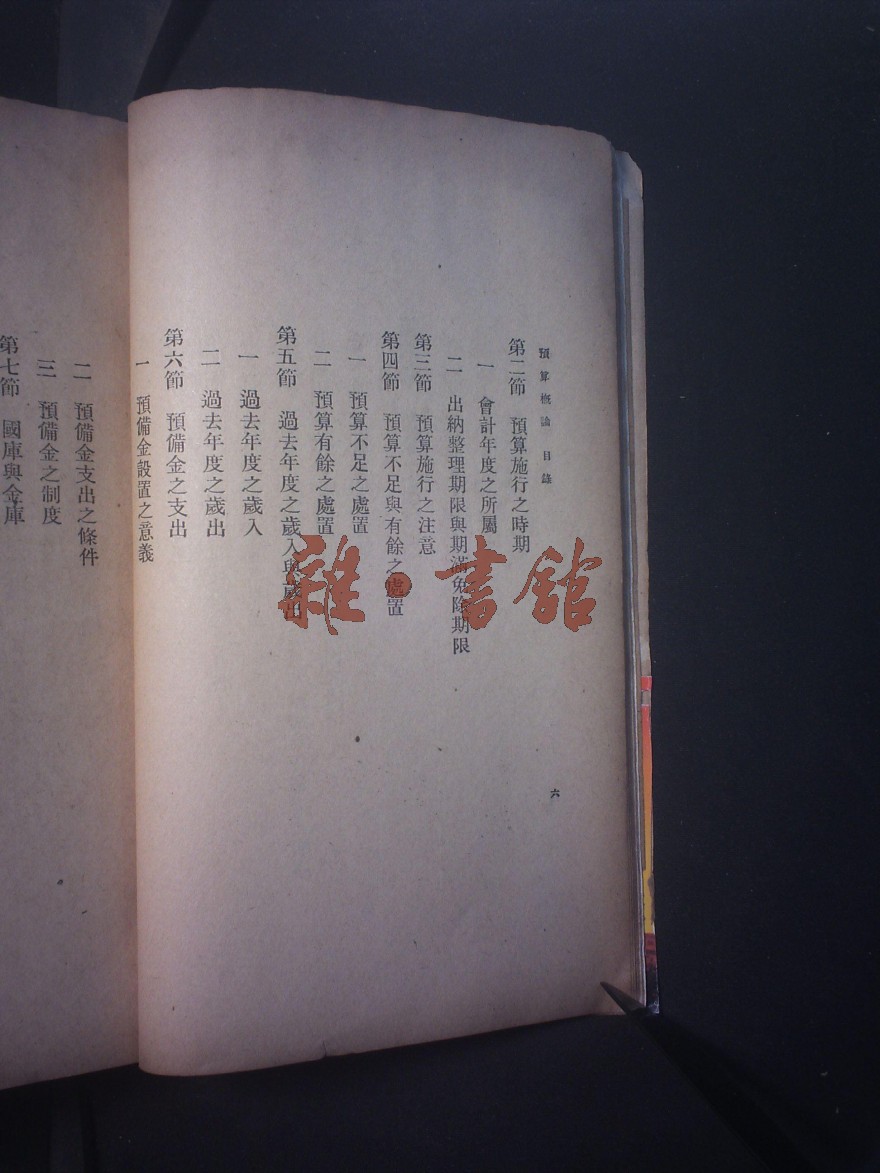 預算概論 目錄
六
第二節 預算施行之時期
一 會計年度之所屬
二 出納整理期限與期滿免除期限
第三節 預算施行之注意
第四節 預算不足與有餘之處置
一 預算不足之處置
二 預算有餘之處置
第五節 過去年度之歲入與歲出
一 過去年度之歲入
二 過去年度之歲出
第六節 預備金之支出
一 預備金設置之意義
二 預備金支出之條件
三 預備金之制度
第七節 國庫與金庫
雜·書館